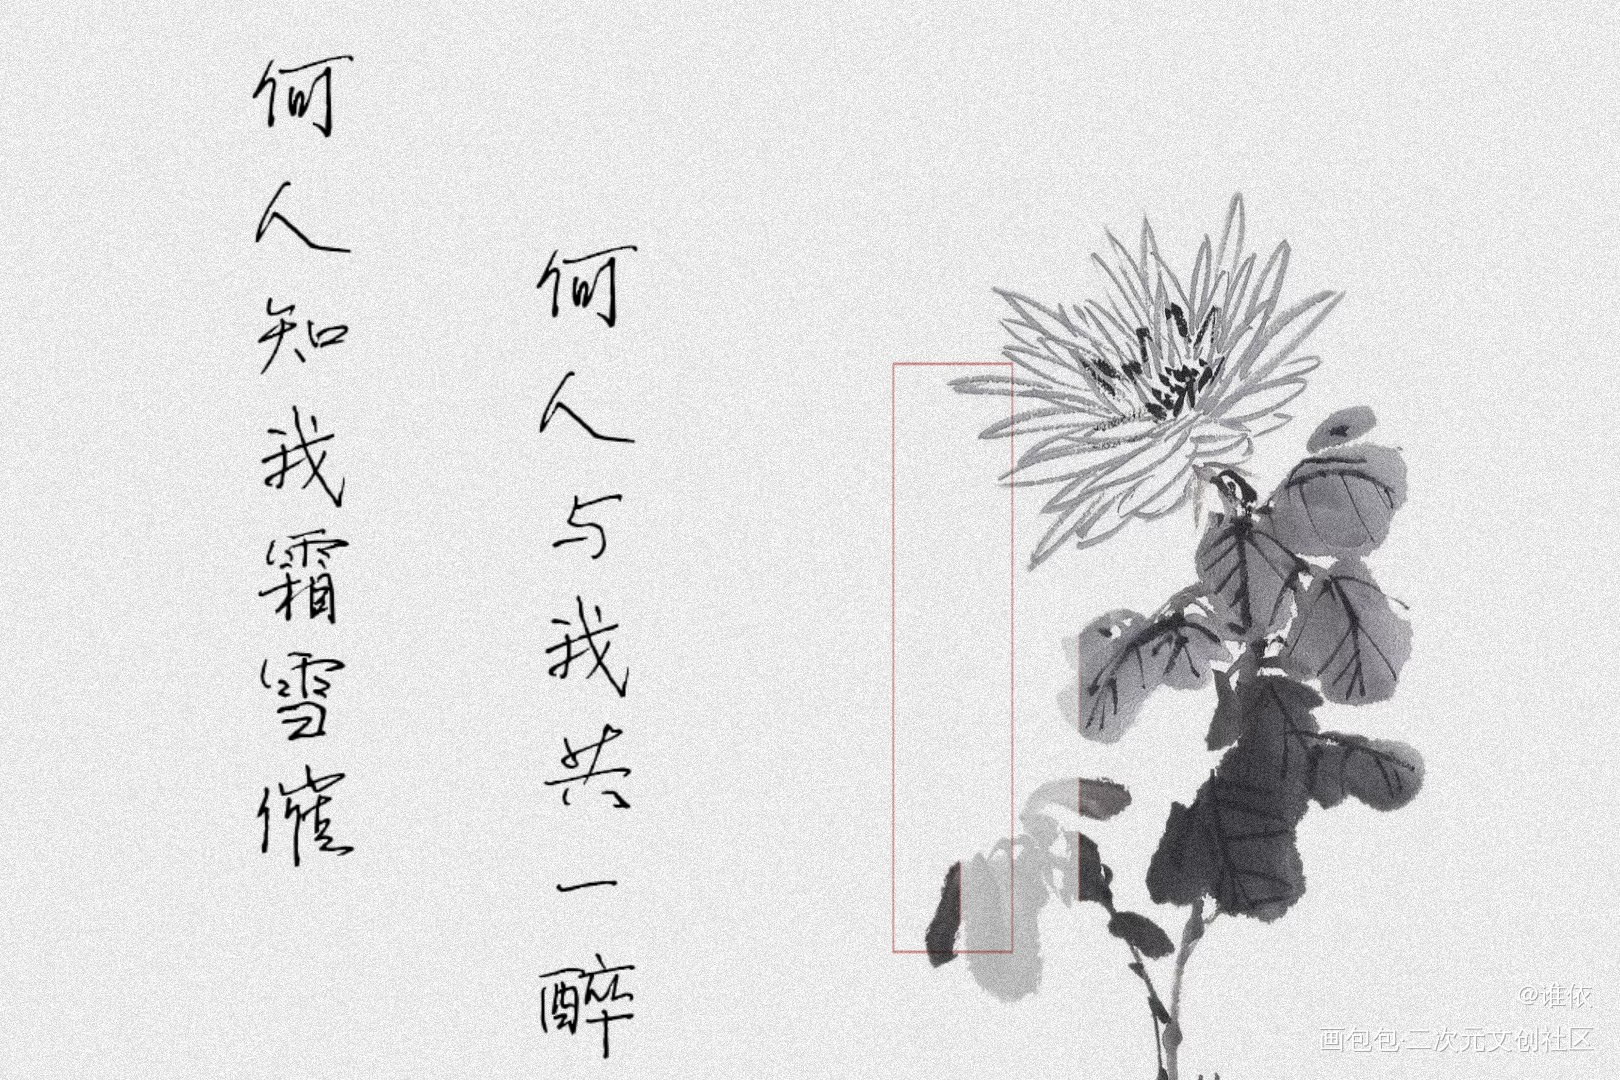 何人知我霜雪催
何人与我共一醉
@谁依
画包包·二次元文创社区